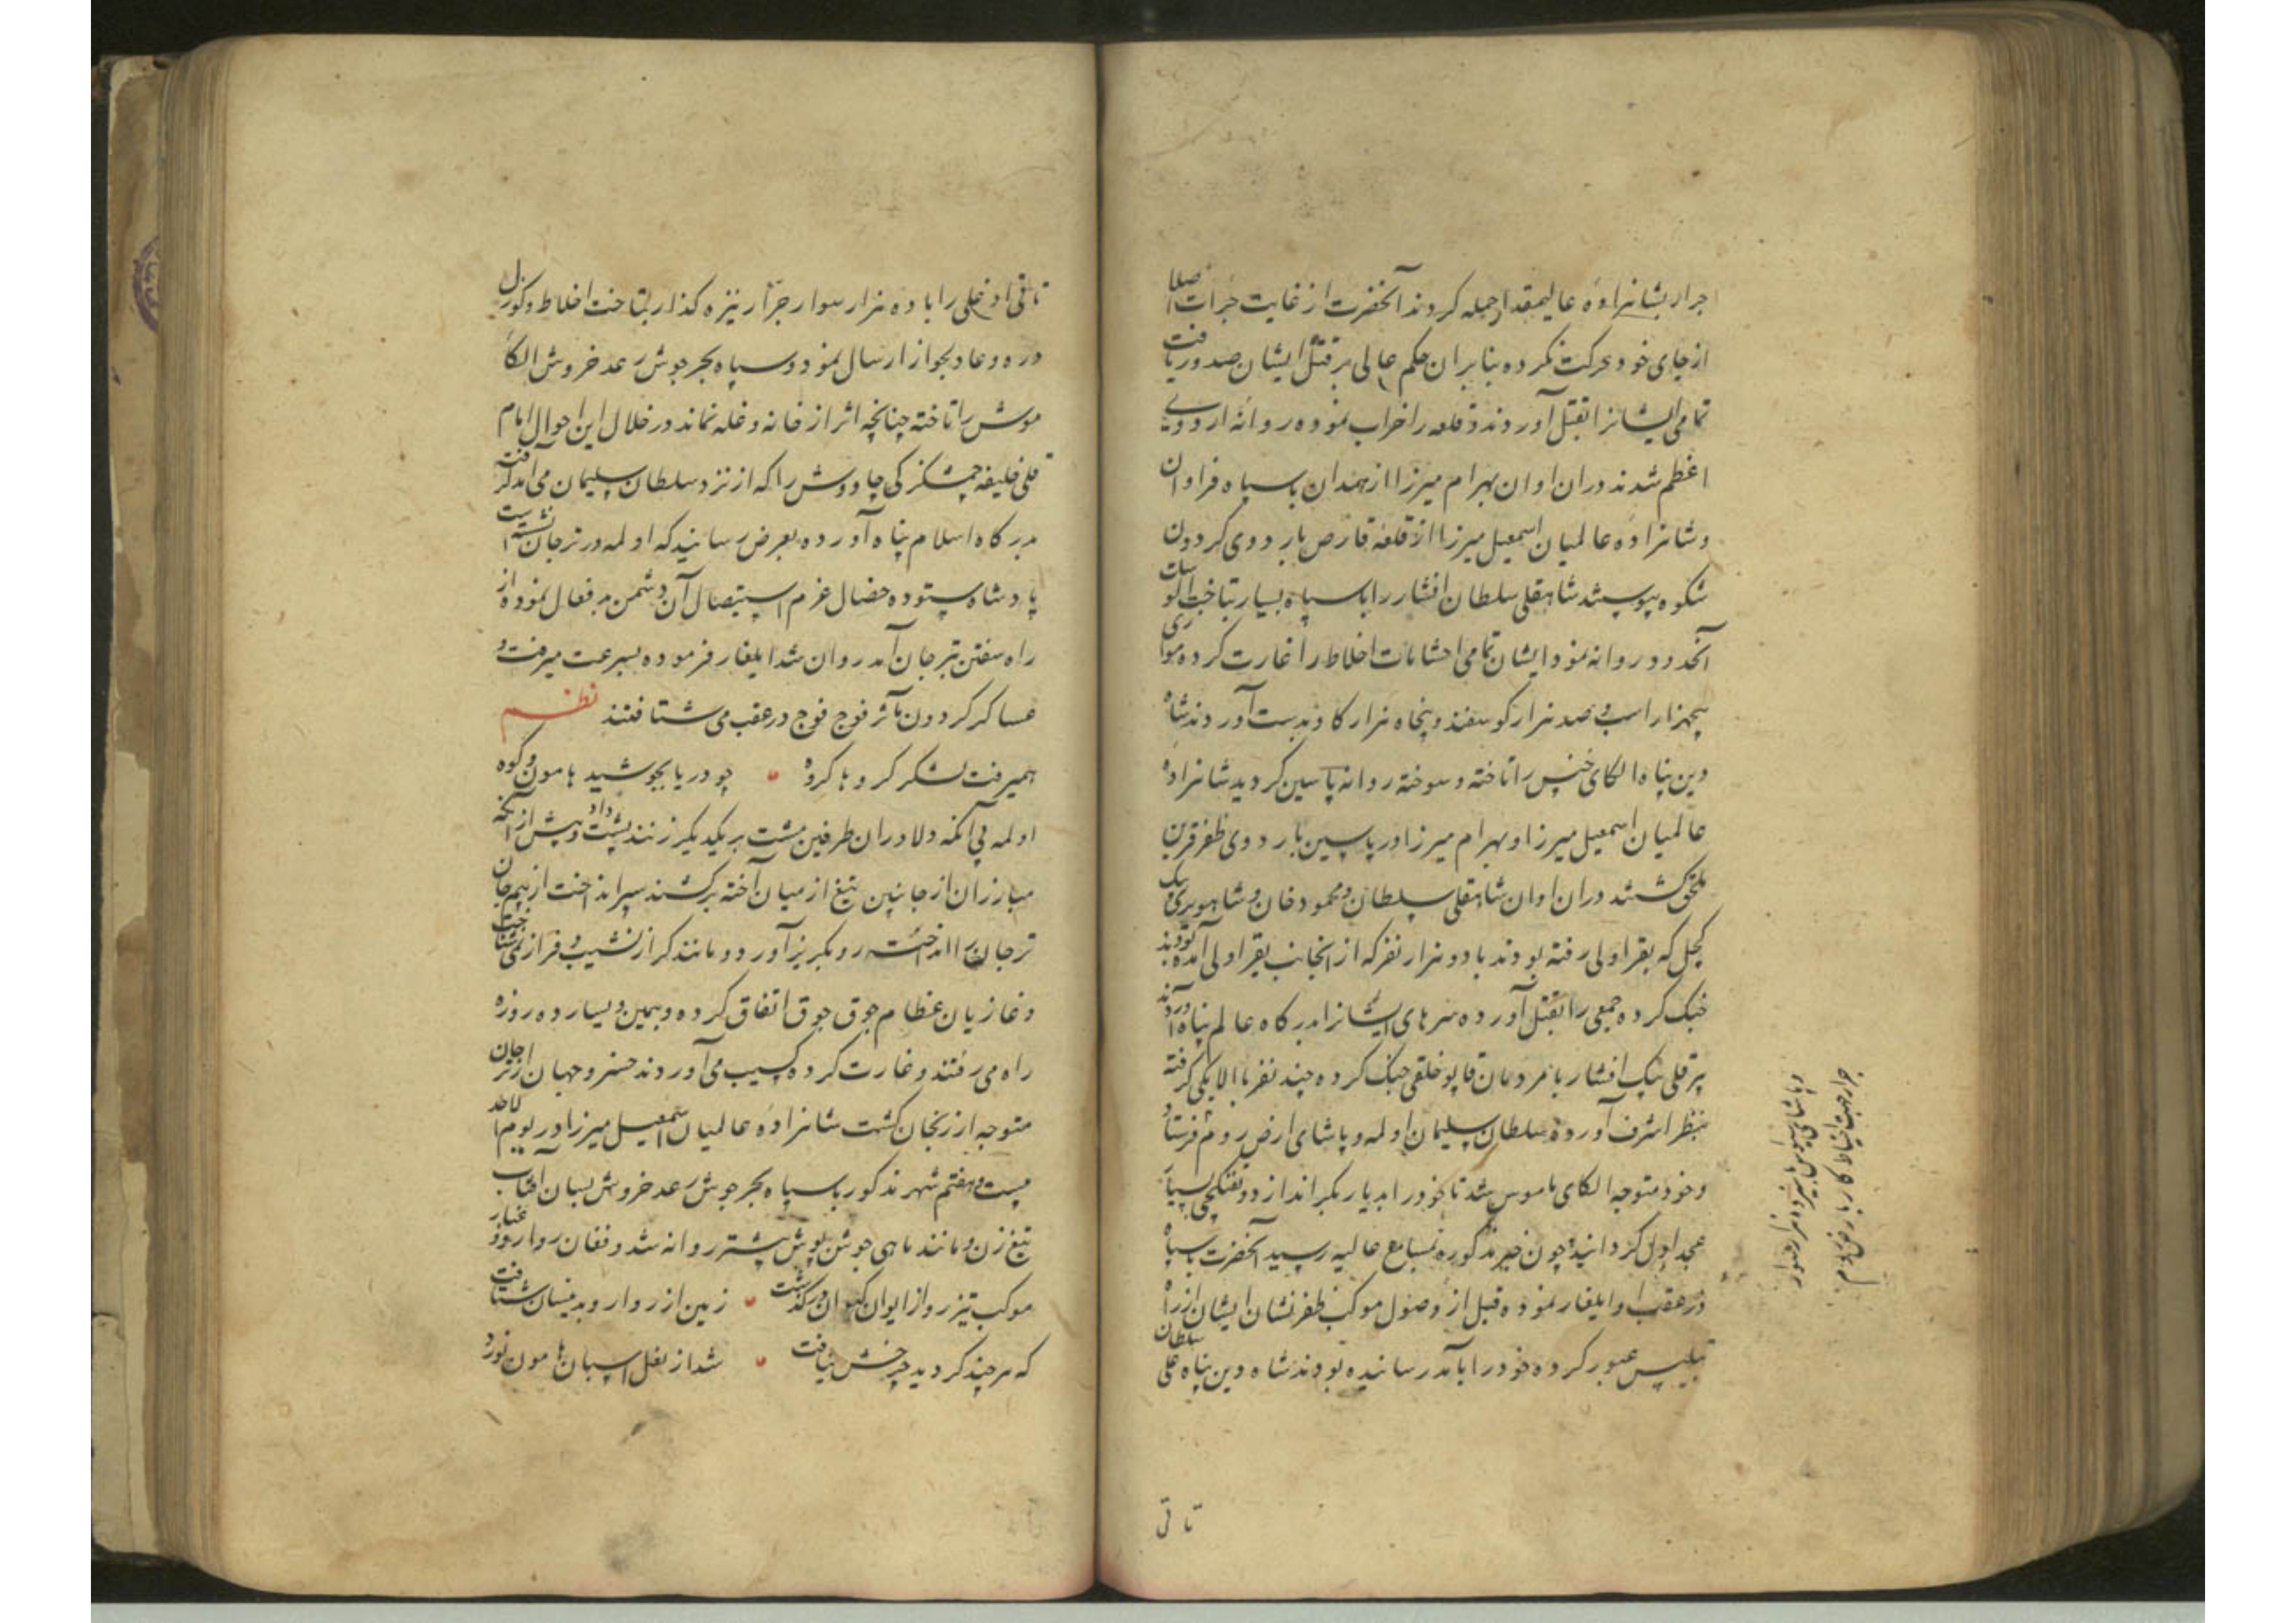 جرار بشاهزاده عالیمقدار حمله کردند آنحضرت از غایت جرات اصلا
از جای خود حرکت نکرده بنابران حکم عالی بر قتل ایشان صدور یافت
تمامی ایشانرا بقتل آوردند و قلعه را خراب نموده روانه اردوی
اعظم شدند دران اوان بهرام میرزا از همدان با سپاه فراوان
و شاهزاده عالمیان اسمعیل میرزا از قلعه قارص باردوی کردون
شکوه پیوستند شاهقلی سلطان افشار را با سپاه بسیار بتاخت الوسات
آنحدود روانه نمود ایشان تمامی احشامات اخلاط را غارت کرده موازی
پنجهزار اسب و صد هزار کوسفند و پنجاه هزار کاو بدست آوردند شاه
دین پناه الکای خنس را تاخته و سوخته روانه پاسین کردید شاهزاده
عالمیان اسمعیل میرزا و بهرام میرزا در پاسین باردوی ظفر قرین
ملحق کشتند دران اوان شاهقلی سلطان و محمود خان و شاهویردی بیک
کچل که بقراولی رفته بودند با دو هزار نفر که از انجانب بقراولی آمده بودند
جنک کرده جمعی را بقتل آورده سرهای ایشانرا بدرکاه عالم پناه آوردند
پیر قلی بیک افشار با مردمان قاپو خلقی جنک کرده چند نفر با الایکی کرفته
بنظر اشرف آورده سلطان سلیمان اولمه و پاشای ارض روم فرستاد
و خود متوجه الکای ماموس شد تا خود را بدیار بکر اندازد و تفنکچی بسیار
عجد اول کردانید چون خبر مذکوره بمسامع عالیه رسید آنحضرت با سپاه
در عقب او ایلغار نموده قبل از وصول موکب ظفر نشان ایشان از راه
تبلیس عبور کرده خود را بآمد رسانیده بودند شاه دین پناه علی سلطان
تا تی
تاتی اوغلی را با ده هزار سوار جرّار نیزه کذار بتاخت اخلاط و کوزل
دره و عادلجواز ارسال نمود و سپاه بحر جوش رعد خروش الکاء
موش را تاخته چنانچه اثر از خانه و غله نماند در خلال این احوال امام
قلی خلیفه چمشکزکی چاووش را که از نزد سلطان سلیمان می آمد کرفت
بدرکاه اسلام پناه آورده بعرض رسانید که اولمه در ترجان نشسته است
پادشاه ستوده خصال عزم استیصال آن دشمن بد فعال نموده از
راه سفتن بترجان آمد روان شد ایلغار فرموده بسرعت میرفت و
عساکر کردون مآثر فوج فوج در عقب می شتافتند نظم
همیرفت لشکر کروها کروه چو دریا بجوشید هامون و کوه
اولمه بی آنکه دلاوران طرفین مشت بر یکدیکر زنند پشت داد و پیش از آنکه
مبارزان از جانبین تیغ از میان آخته برکشند سپر انداخت از بیم جان
ترجان را انداخته رو بکریز آورد و مانند کر از نشیب و فراز می شتافت
و غازیان عظام جوق جوق اتفاق کرده و بیمین و یسار ده روزه
راه می رفتند و غارت کرده کسیب می آوردند خسرو جهان از ترجان
متوجه ارزنجان کشت شاهزاده عالمیان اسمعیل میرزا در یوم الاحد
بیست و هفتم شهر مذکور با سپاه بحر جوش رعد خروش بسان افتاب
تیغ زن و مانند ماهی جوشن پوش پیشتر روانه شد و فغان روارو و غبار
موکب تیز رو از ایوان کیوان در کذشت زمین از روارو بدینسان شتافت
که هر چند کردید چرخش نیافت شد از نعل اسبان هامون نورد